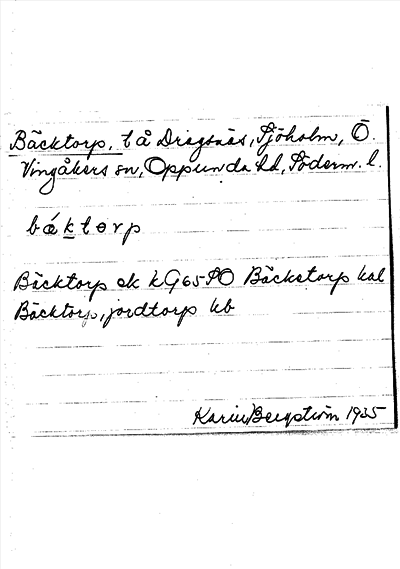 Bäcktorp, t å Dragsnäs, Sjöholm, Ö.
Vingåkers sn, Oppunda hd, Söderm. l.
bǽktorp
Bäcktorp ek kG65 SO Bäckstorp kal
Bäcktorp, jordtorp kb
Karin Bergström 1935